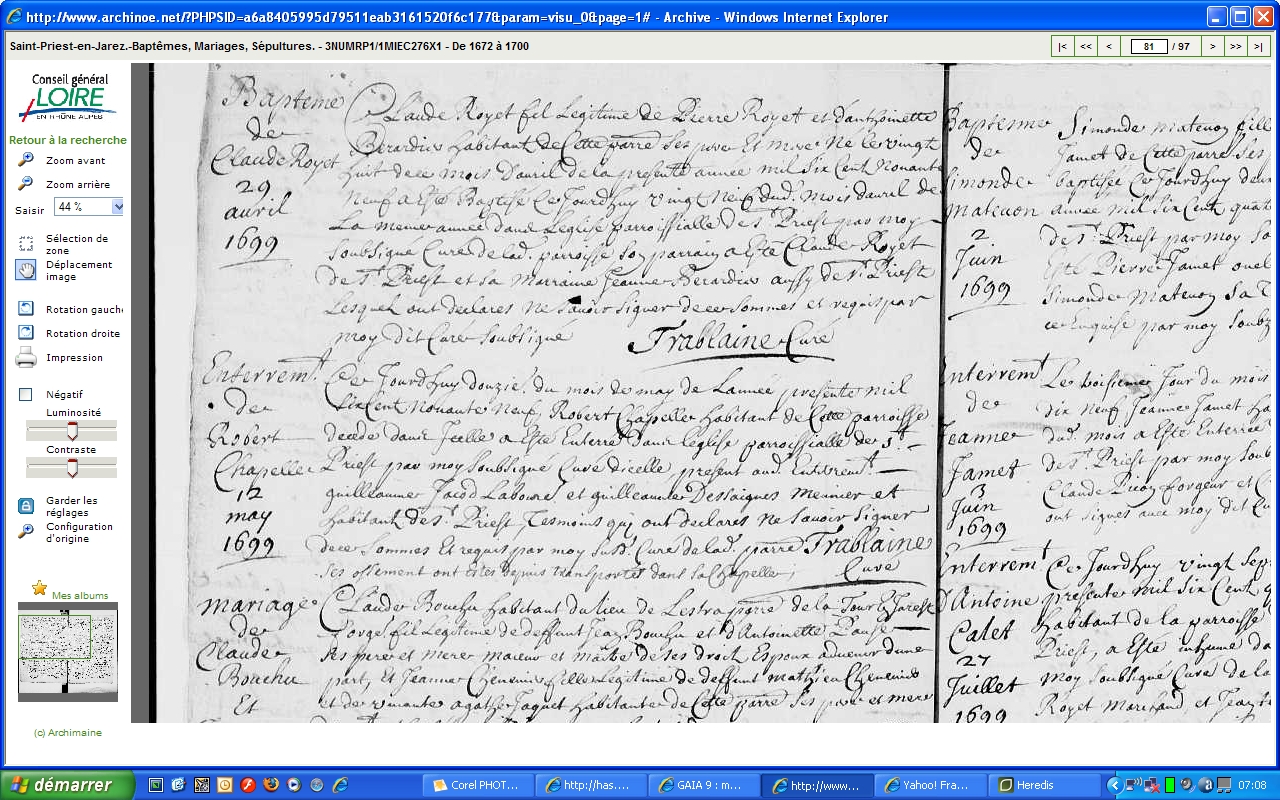 http://www.archinoe.net/?PHPSID=a6a8405995d79511eab3161520f6c177&param=visu_0&page=1# - Archive - Windows Internet Explorer
Saint-Priest-en-Jarez.-Baptêmes, Mariages, Sépultures. - 3NUMRP1/1MIEC276X1 - De 1672 à 1700
|< << < 81 / 97 > >> >|
Conseil général
LOIRE
EN RHÔNE ALPES
Retour à la recherche
Zoom avant
Zoom arrière
Saisir 44 %
Sélection de
zone
Déplacement
image
Rotation gauch
Rotation droite
Impression
Négatif
Luminosité
Contraste
Garder les
réglages
Configuration
d'origine
Mes albums
(c) Archimaine
Bapteme
de
Claude Royet
29
avril
1699
Claude Royet fil Legitime de Pierre Royet et d'anthoinette
Berardier habitant de Cette parre Ses pere Et mere Ne le vingt
huit de ce mois D'avril de la presente année mil six Cent Nonante
Neuf a Esté Baptisé Ce Jourd'huy vingt Neuf dud. mois d'avril de
La meme année dans L'eglise parroissialle de St. Priest par moy
Soubsigné Curé de lad. parroisse son parrain a Esté Claude Royet
de St. Priest et sa Marraine Jeanne Berardier aussy de St. Priest
Lesquels ont declarés Ne Savoir Signer de ce Sommes et requis par
moy dit Curé Soubsigné
Trablaine Curé
Enterremt.
de
Robert
Chapelle
12
may
1699
Ce Jourd'huy douzie. du mois de may de L'année presente mil
Six Cent Nonante Neuf, Robert Chapelle habitant de Cette parroisse
decedé dans Icelle a Esté Enterré dans L'eglise parroissialle de St.
Priest par moy Soubsigné Curé d'icelle, present aud. Enterremt.
guilleaume Jacod Laboure. et guilleaume Dessaignes Meunier et
habitant de St. Priest Tesmoins qui ont declarés Ne Savoir Signer
de ce Sommes Et requis par moy susd. Curé de lad. parre Trablaine
Ses ossement ont etes depuis transportés dans la Chapelle; Curé
mariage
de
Claude
Bouchu
Et
Claude Bouchu habitant du lieu de Lestra parre de la Tour Jarest
forge. fil Legitime de deffunt Jean Bouchu et d'Antoinette
Ses pere et Mere maieur et maitre de ses droit, Espoux advenir d'une
part, et Jeanne fille Legitime de deffunt mathieu
et de vivante agathe Jaquet habitante de Cette parre Ses pere et mere
Bapteme
de
Simonde
Matevon
2
Juin
1699
Simonde matevon fille
Jamet de Cette parre Ses
baptisée Ce Jourd'huy deux
année mil six Cent
de St. Priest par moy So
Esté Pierre Jamet
Simonde Matevon Sa
ce Enquise par moy Soub
Enterremt
de
Jeanne
Jamet
3
Juin
1699
Le troisieme Jour du mois
dix neuf Jeanne Jamet ha
dud. mois a Esté Enterrée
de St. Priest par moy Soub
Claude Picon forgeur et C
ont signes avec moy dit Cu
Enterremt
D'Antoine
Calet
27
Juillet
1699
Ce Jourd'huy vingt Sept
presente mil six Cent
habitant de la parroisse
Priest, a Esté inhumé da
moy Soubsigné Curé de la
Royet Marchand, et Jean
démarrer
Corel PHOT...
http://has....
GAIA 9 : m...
http://www...
Yahoo! Fra...
Heredis
07:08